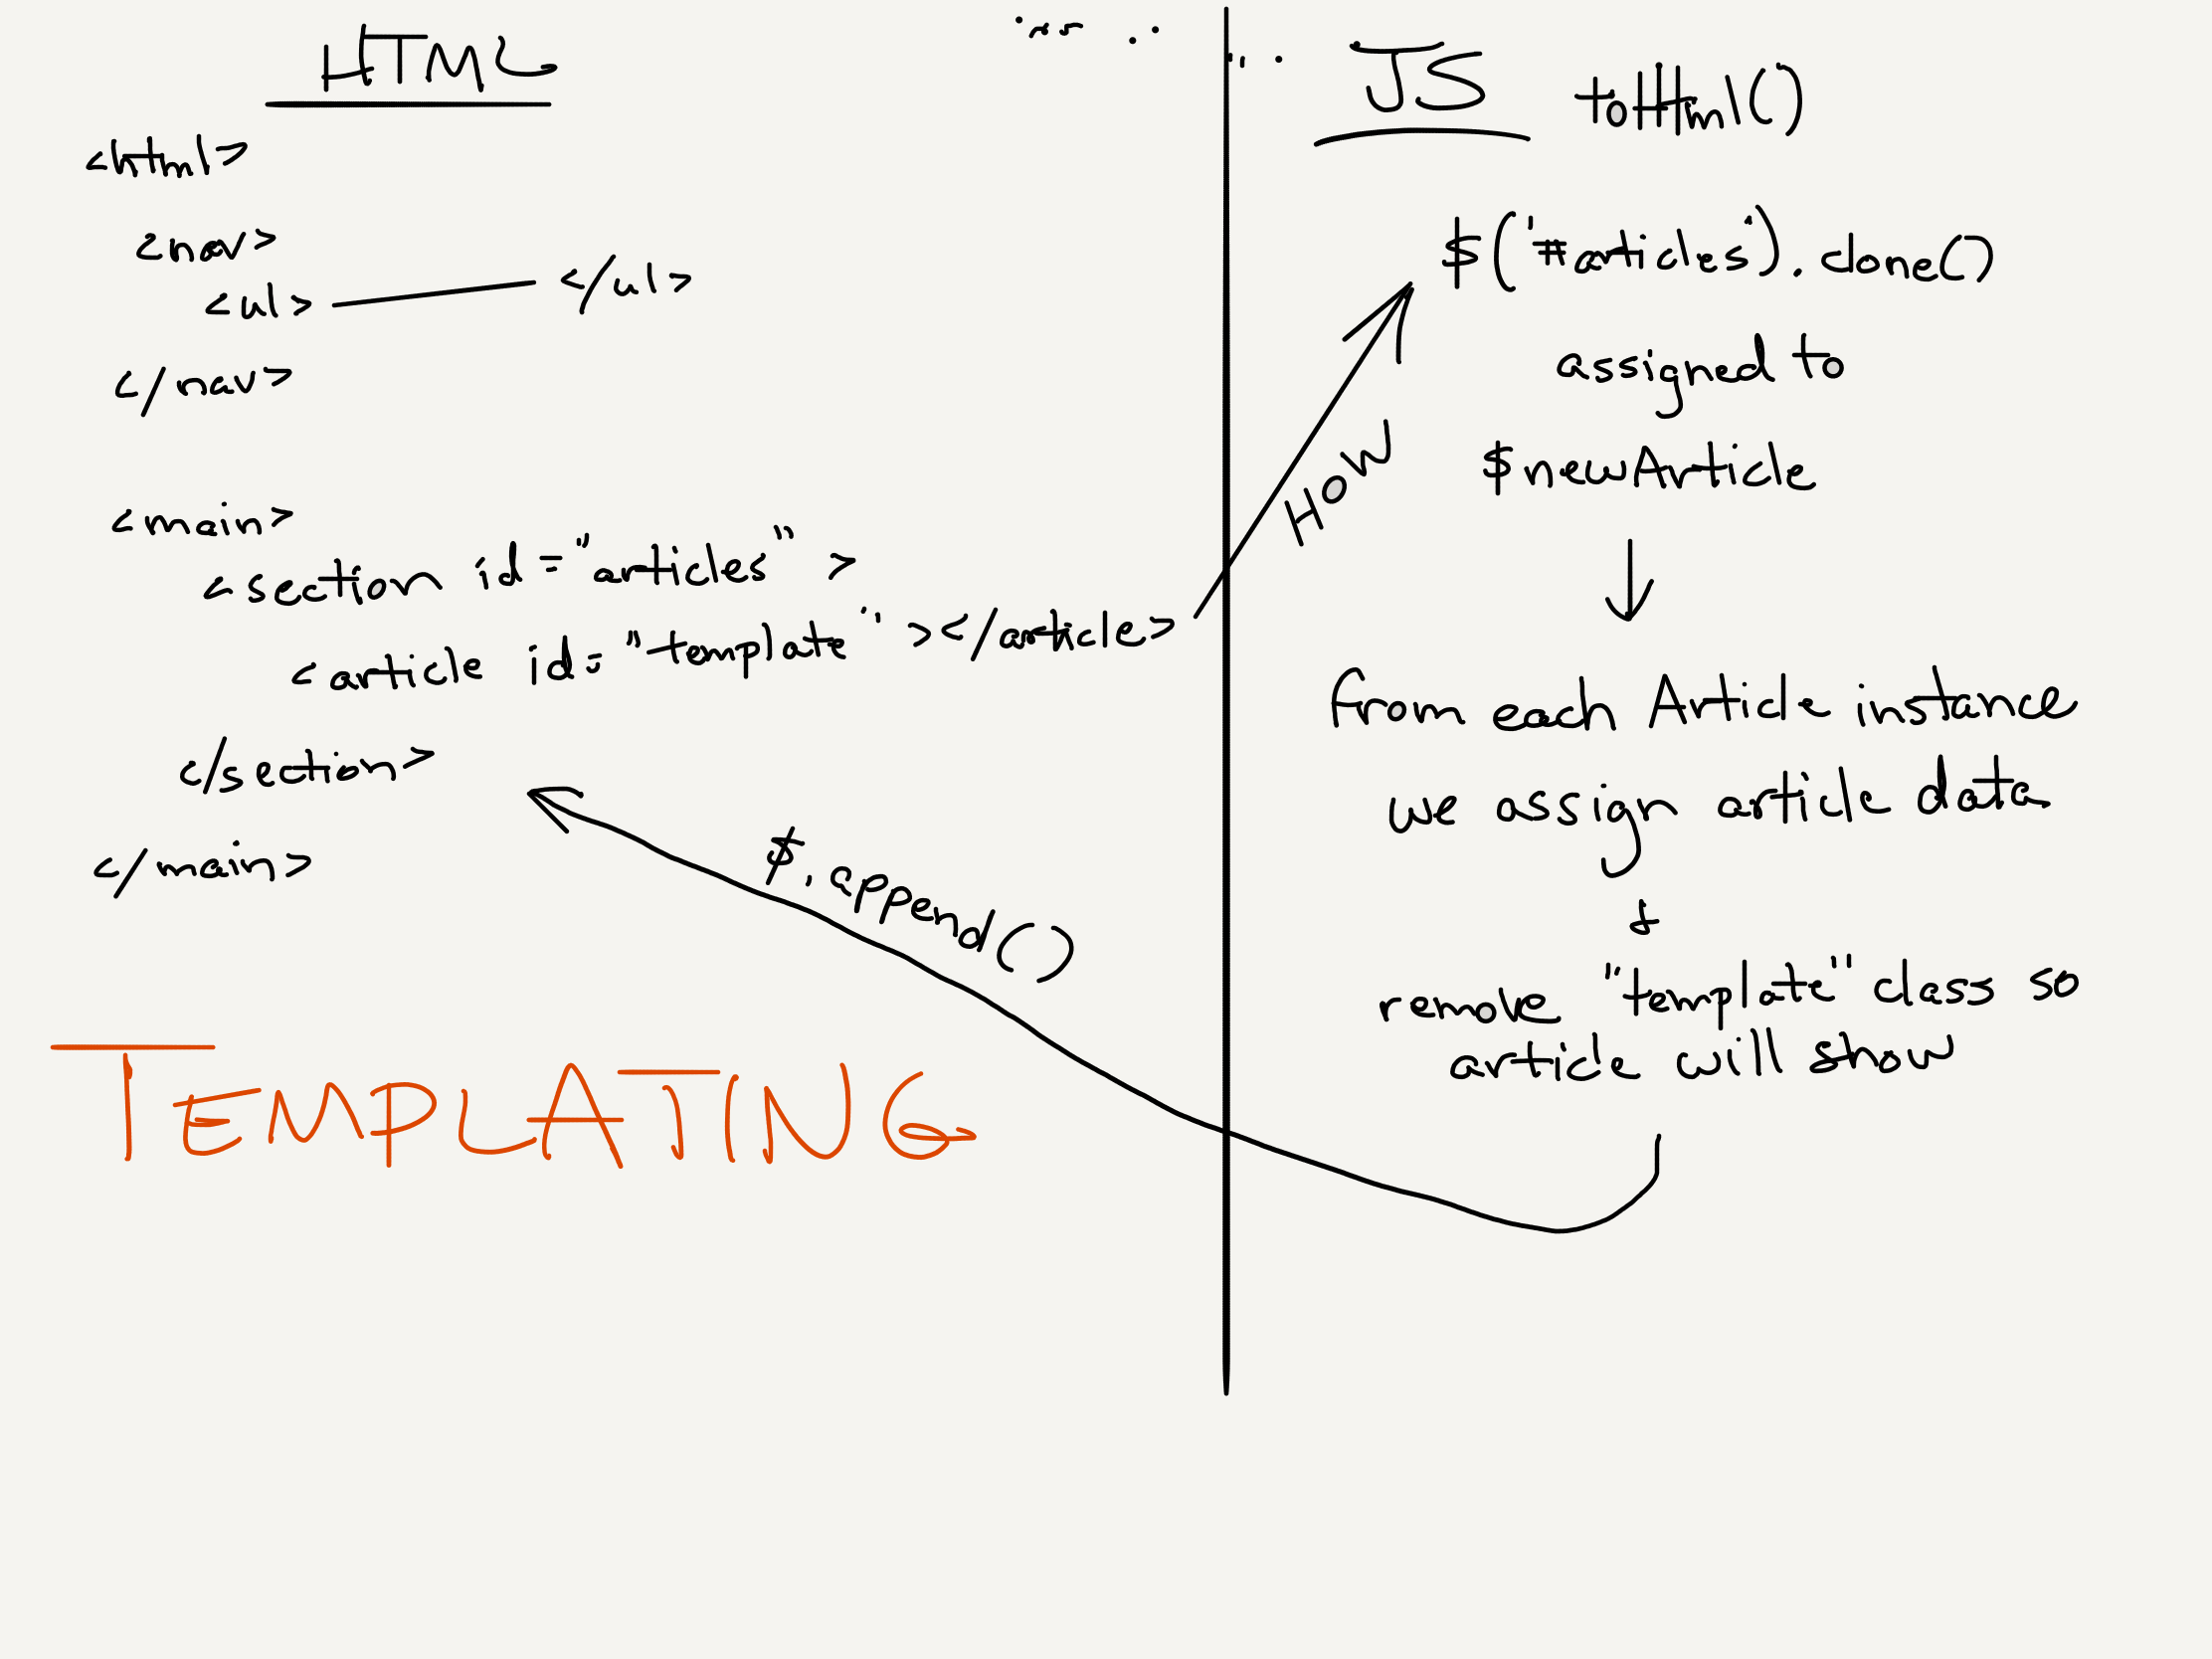 HTML
<html>
<nav>
<ul> </ul>
</nav>
<main>
<section id="articles">
<article id="template"></article>
</section>
</main>
$.append()
TEMPLATING
HOW
JS toHtml()
$('#articles').clone()
assigned to
$newArticle
from each Article instance
we assign article data
&
remove "template" class so
article will show